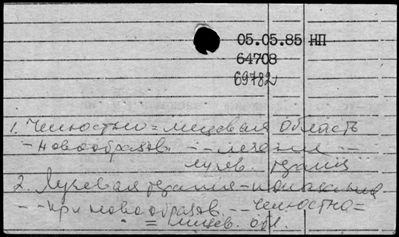 05.05.85 НП
64708
69782
1. Челюстно=лицевая область
- новообразов. -- лечение --
лучев. терапия
2. Лучевая терапия -
-- при новообразов. -- челюстно=
= лицев. обл.